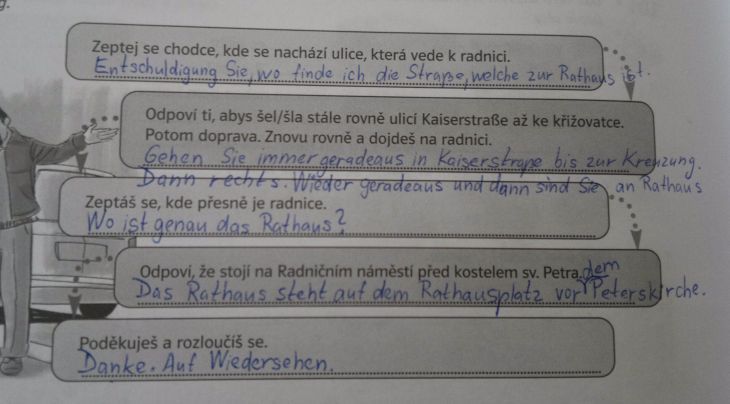 Zeptej se chodce, kde se nachází ulice, která vede k radnici.
Entschuldigung Sie, wo finde ich die Straße, welche zur Rathaus ist.
Odpoví ti, abys šel/šla stále rovně ulicí Kaiserstraße až ke křižovatce.
Potom doprava. Znovu rovně a dojdeš na radnici.
Gehen Sie immer geradeaus in Kaiserstraße bis zur Kreuzung.
Dann rechts. Wieder geradeaus und dann sind Sie an Rathaus
Zeptáš se, kde přesně je radnice.
Wo ist genau das Rathaus?
Odpoví, že stojí na Radničním náměstí před kostelem sv. Petra.
dem
Das Rathaus steht auf dem Rathausplatz vor Peterskirche.
Poděkuješ a rozloučíš se.
Danke. Auf Wiedersehen.